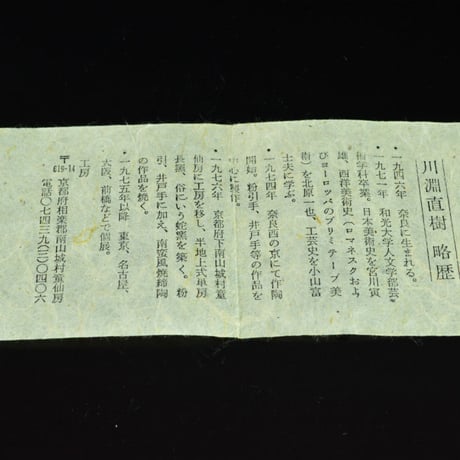 川淵直樹 略歴
・一九四六年 奈良に生まれる。
・一九七一年 和光大学人文学部芸
術学科卒業。日本美術史を宮川寅
雄、西洋美術史(ロマネスクおよ
びヨーロッパのプリミテーブ美
術)を北原一也、工芸史を小山富
士夫に学ぶ。
・一九七四年 奈良西の京にて作陶
開始。粉引手、井戸手等の作品を
中心に製作。
・一九七六年 京都府下南山城村童
仙房に工房を移し、半地上式単房
長窯、俗にいう蛇窯を築く。粉
引、井戸手に加え、南蛮風焼締陶
の作品を焼く。
・一九七五年以降 東京、名古屋、
大阪、前橋などで個展。
工房
〒619-14 京都府相楽郡南山城村童仙房
電話〇七四三九(三)〇四〇六